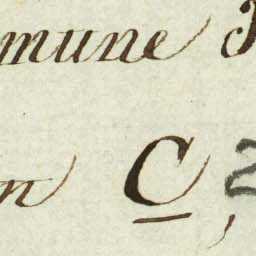 mmune
n C,